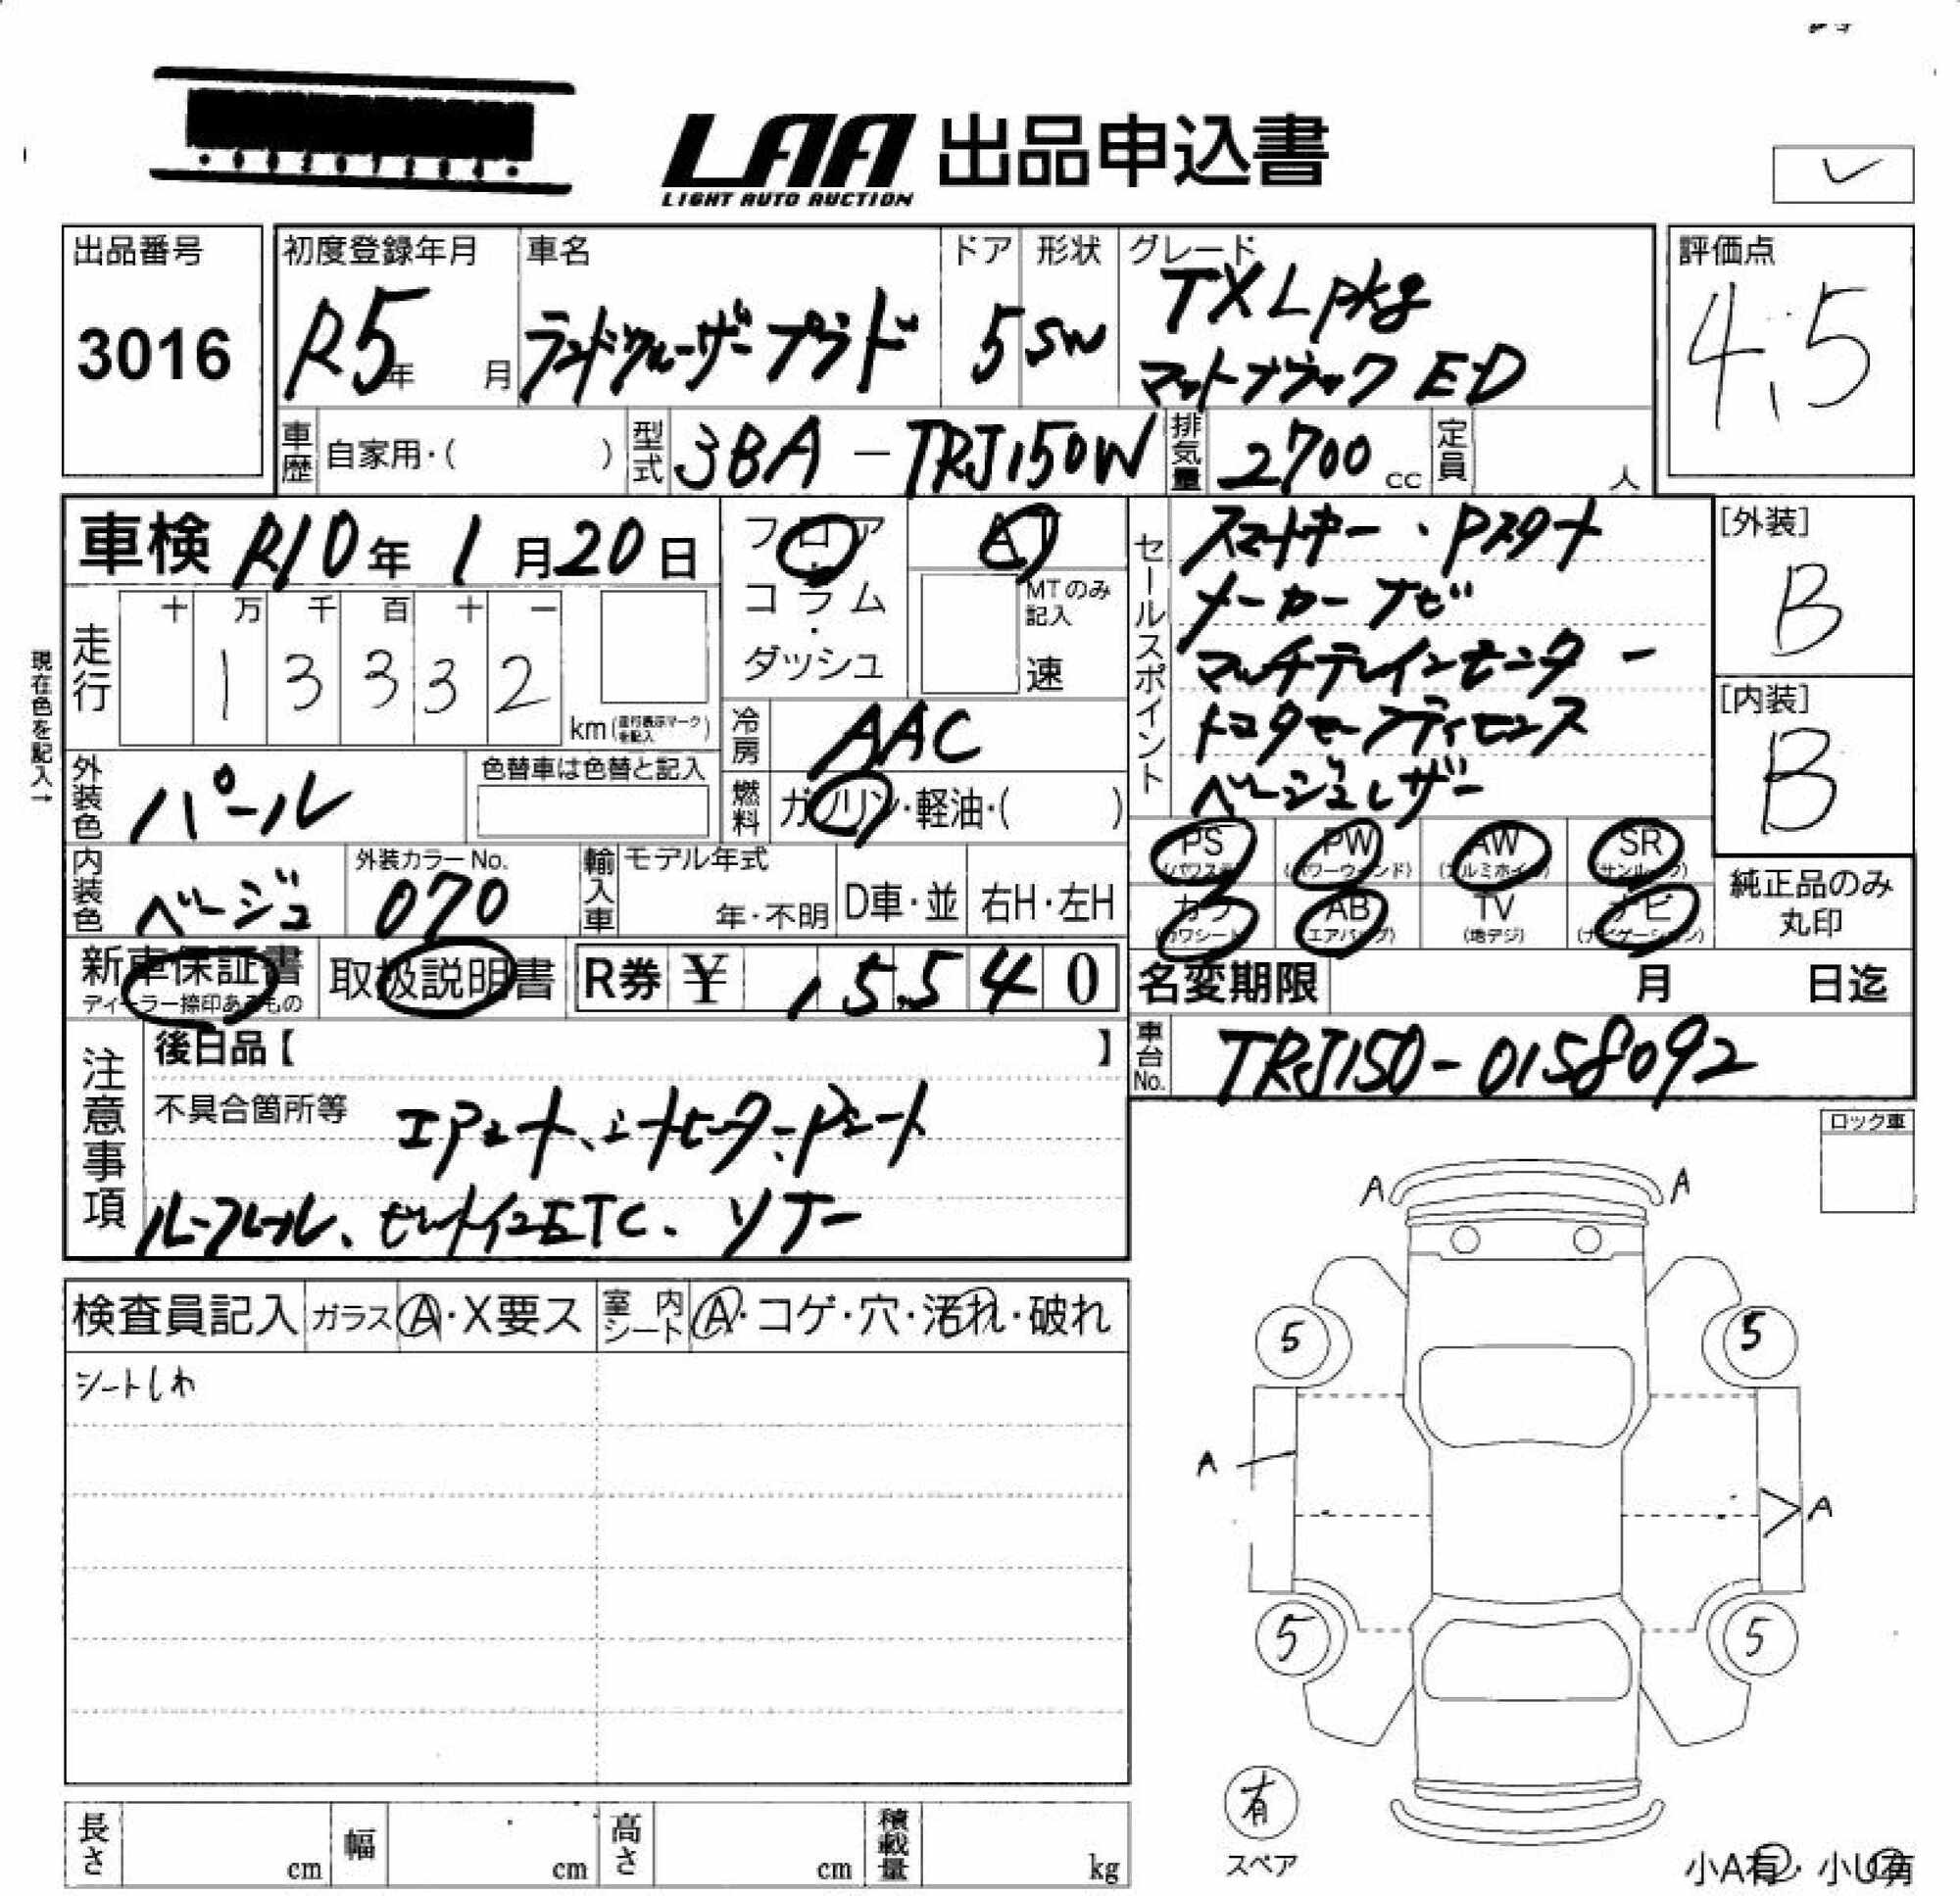 LAA 出品申込書
LIGHT AUTO AUCTION
出品番号
3016
初度登録年月
R5年 月
車名
ランドクルーザープラド
ドア
5
形状
SW
グレード
TX Lpkg
マットブラック ED
評価点
4.5
車歴 自家用・( )
型式 3BA-TRJ150W
排気量 2700 cc
定員 人
車検 R10年 1月20日
フロア・コラム・ダッシュ
AT
MTのみ記入
速
現在色を記入→
走行
十 万 千 百 十 一
1 3 3 3 2
km(走行表示マークを記入)
冷房 AAC
燃料 ガソリン・軽油・( )
外装色 パール
色替車は色替と記入
内装色 ベージュ
外装カラーNo.
070
輸入車
モデル年式
年・不明
D車・並
右H・左H
セールスポイント
スマートキー・Pスタート
メーカーナビ
マルチテレインモニター
トヨタセーフティセンス
ベージュレザー
[外装]
B
[内装]
B
PS
(パワステ)
PW
(パワーウィンド)
AW
(アルミホイル)
SR
(サンルーフ)
カワ
(カワシート)
AB
(エアバッグ)
TV
(地デジ)
ナビ
(ナビゲーション)
純正品のみ
丸印
新車保証書
ディーラー捺印あるもの
取扱説明書
R券 ¥ 15,540
名変期限 月 日迄
車台No. TRJ150-0158092
注意事項
後日品【 】
不具合箇所等 エアシート、シートヒーター、Pシート
ルーフレール、セットインETC、ソナー
ロック車
検査員記入
ガラス A・X要ス
室内シート A・コゲ・穴・汚れ・破れ
シートしわ
A A
5 5
A
A
5 5
有
スペア
小A有・小U有
長さ cm
幅 cm
高さ cm
積載量 kg